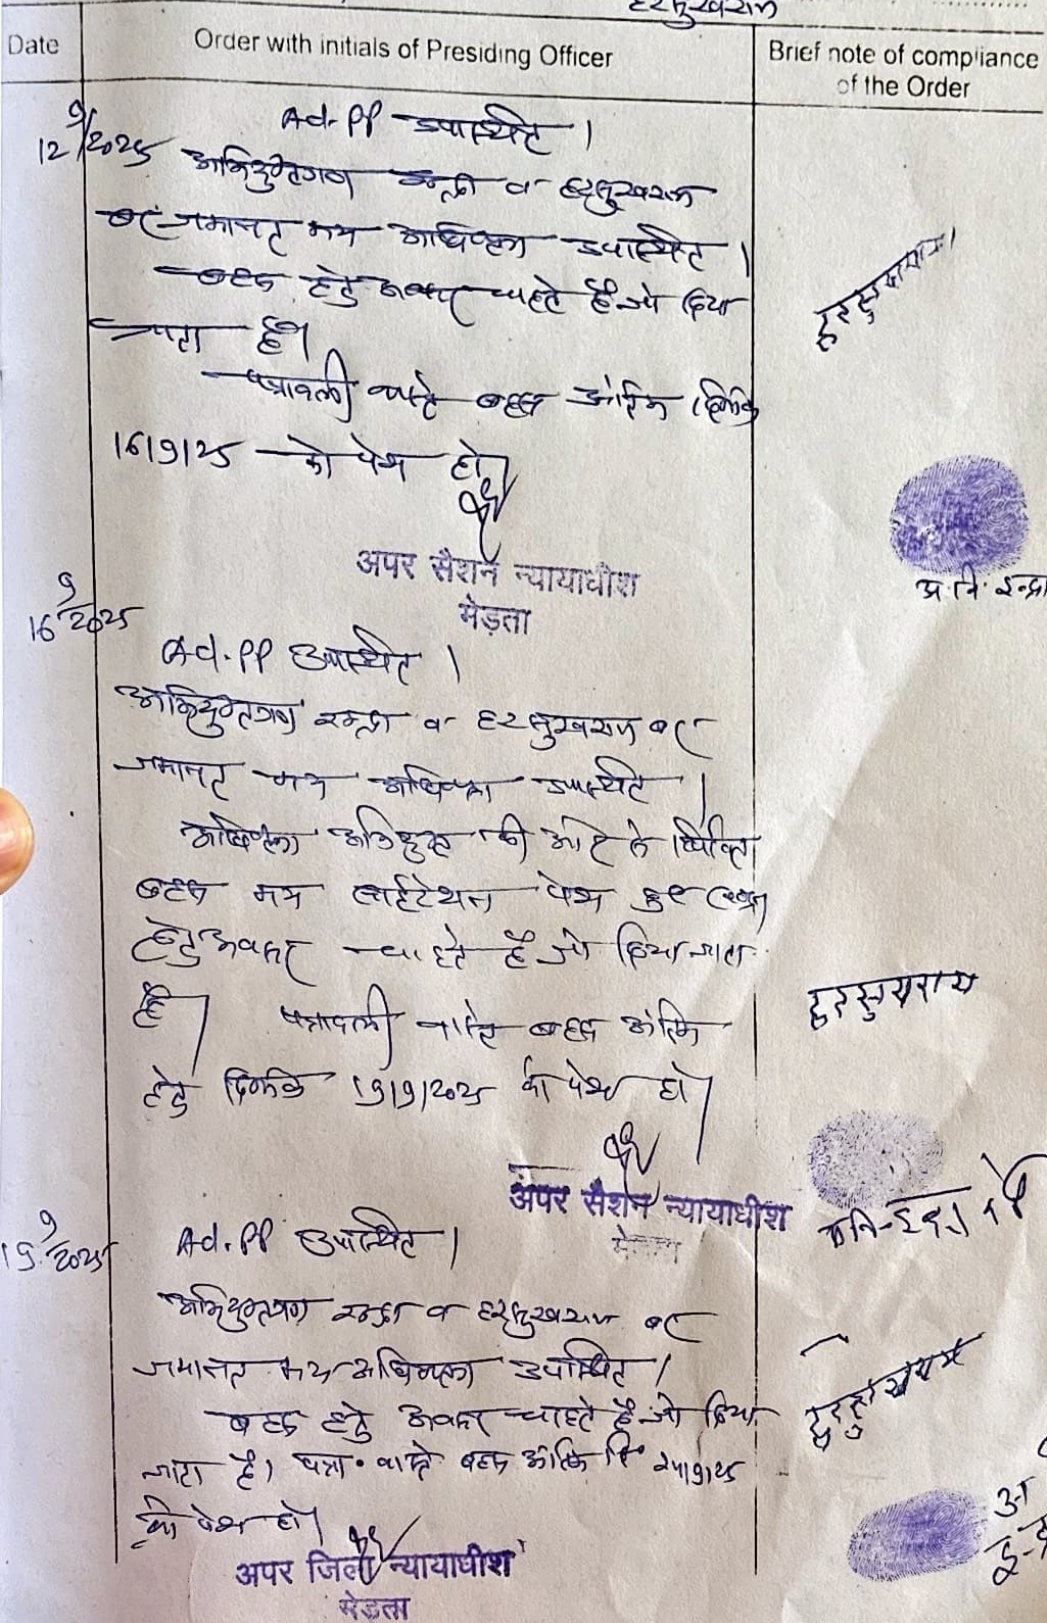 हरसुखराम
Date
Order with initials of Presiding Officer
Brief note of compliance
of the Order
12/9/2025
Ad. PP उपस्थित ।
अभियुक्तगण इन्द्रा व हरसुखराम
बर जमानत मय अधिवक्ता उपस्थित ।
बहस हेतु अवसर चाहते है जो दिया
जाता है।
पत्रावली वास्ते बहस अंतिम दिनांक
16/9/25 को पेश हो।
हरसुखराम
अपर सैशन न्यायाधीश
मेड़ता
अ. नि. इन्द्रा
16/9/2025
Ad. PP उपस्थित ।
अभियुक्तगण इन्द्रा व हरसुखराम बर
जमानत मय अधिवक्ता उपस्थित ।
अधिवक्ता अभियुक्त की ओर से लिखित
बहस मय साईटेशन पेश कर
हेतु अवसर चाहते है जो दिया जाता
है। पत्रावली वास्ते बहस अंतिम
हेतु दिनांक 19/9/2025 को पेश हो।
हरसुखराम
अपर सैशन न्यायाधीश
मेड़ता
19/9/2025
Ad. PP उपस्थित ।
अभियुक्तगण इन्द्रा व हरसुखराम बर
जमानत मय अधिवक्ता उपस्थित ।
बहस हेतु अवसर चाहते है जो दिया
जाता है। पत्रा. वास्ते बहस अंतिम दि. 24/9/25
को पेश हो।
हरसुखराम
अपर जिला न्यायाधीश
मेड़ता